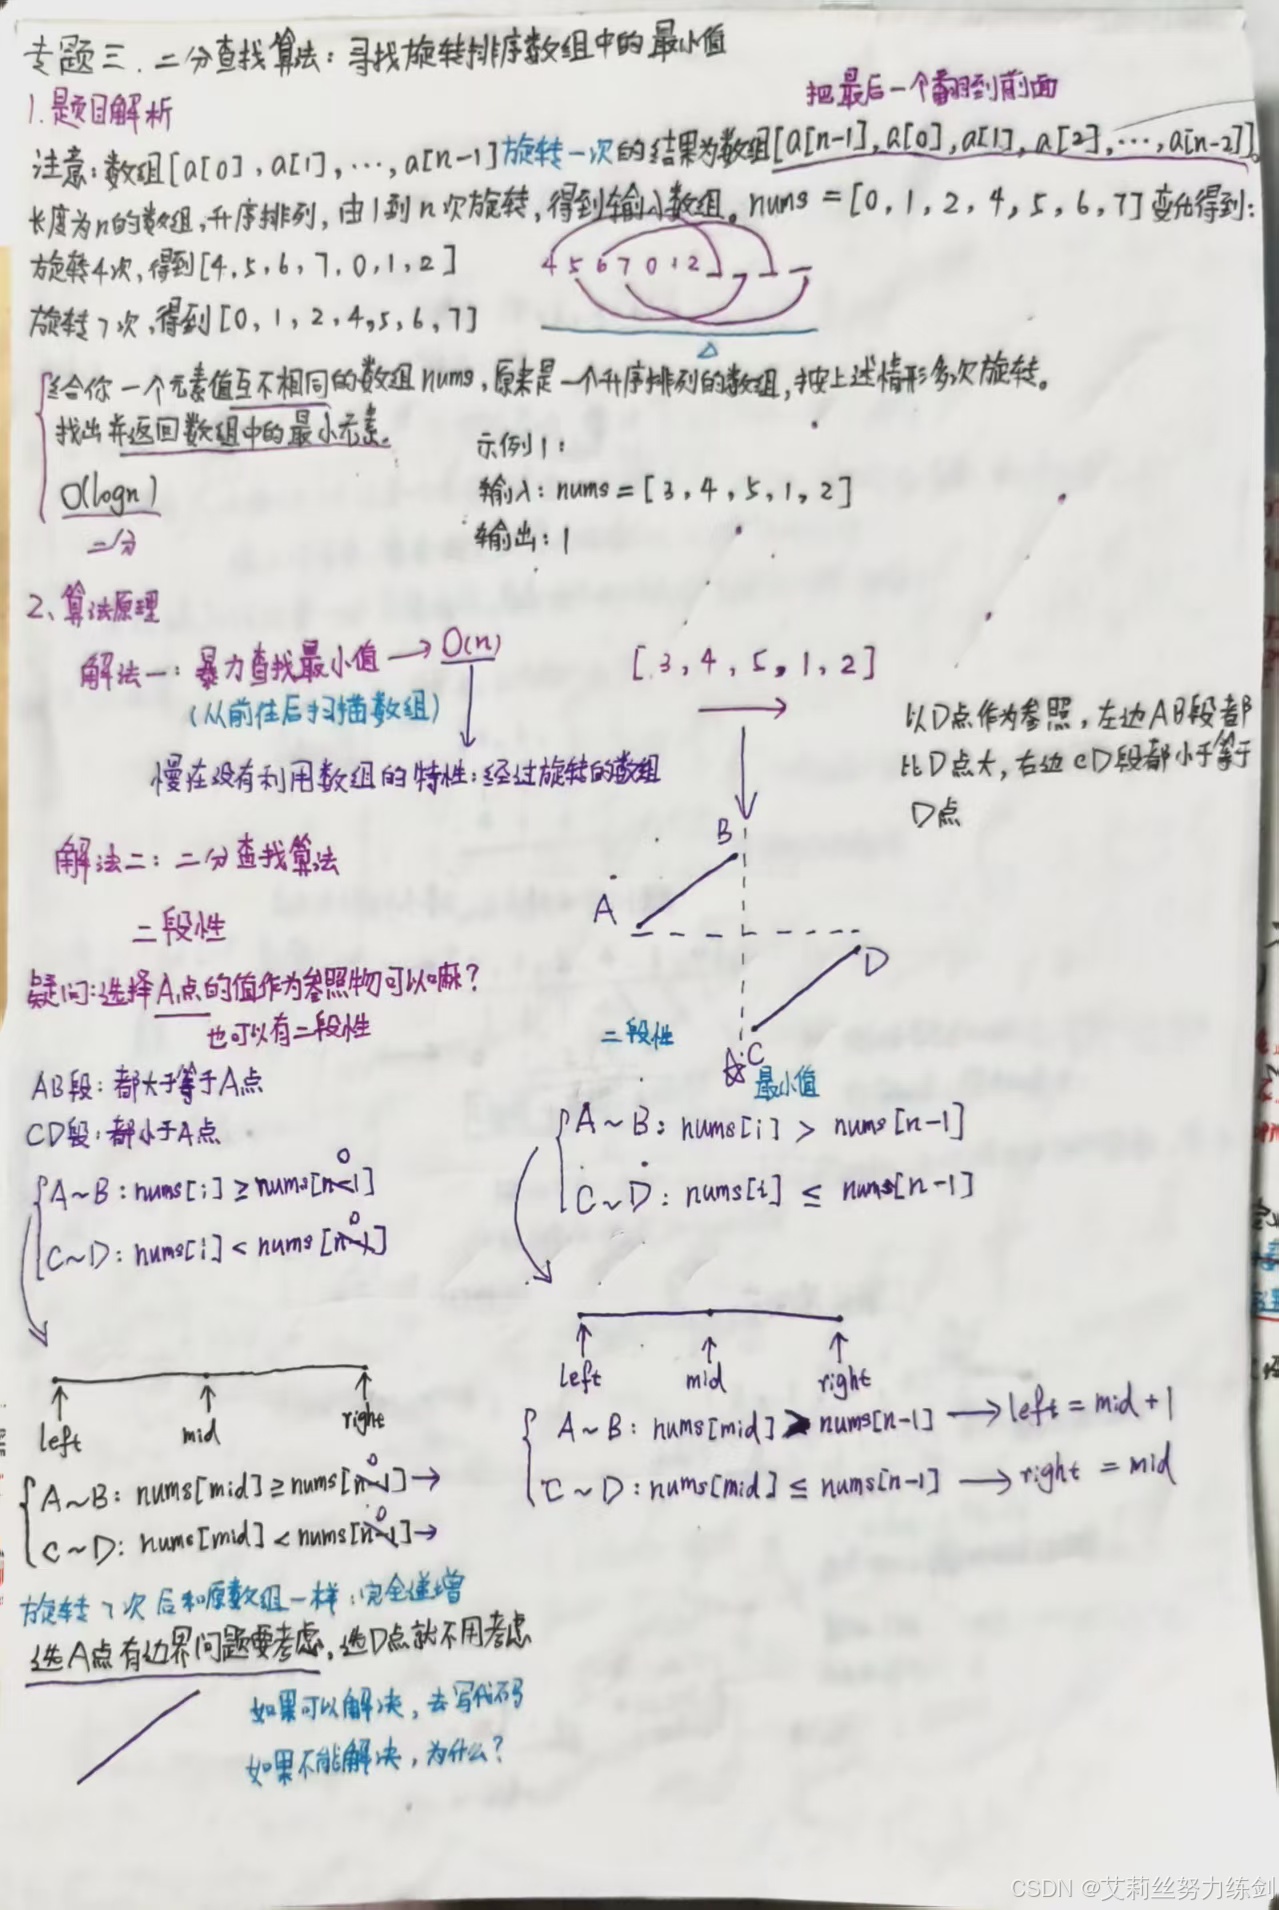 专题三.二分查找算法:寻找旋转排序数组中的最小值
1.题目解析
把最后一个翻到前面
注意:数组[a[0],a[1],…,a[n-1]旋转一次的结果为数组[a[n-1],a[0],a[1],a[2],…,a[n-2]]。
长度为n的数组,升序排列,由1到n次旋转,得到输入数组。nums=[0,1,2,4,5,6,7]变化得到:
旋转4次,得到[4,5,6,7,0,1,2]
4 5 6 7 0 1 2
旋转7次,得到[0,1,2,4,5,6,7]
给你一个元素值互不相同的数组nums,原来是一个升序排列的数组,按上述情形多次旋转。
找出并返回数组中的最小元素。
O(logn)
二分
示例1:
输入:nums=[3,4,5,1,2]
输出:1
2、算法原理
解法一:暴力查找最小值→O(n)
(从前往后扫描数组)
慢在没有利用数组的特性:经过旋转的数组
[3,4,5,1,2]
以D点作为参照,左边AB段都
比D点大,右边CD段都小于等于
D点
解法二:二分查找算法
二段性
B
A
D
C
最小值
二段性
疑问:选择A点的值作为参照物可以嘛?
也可以有二段性
AB段:都大于等于A点
CD段:都小于A点
A~B:nums[i]≥nums[n-1]
0
C~D:nums[i]<nums[n-1]
0
A~B:nums[i]>nums[n-1]
C~D:nums[i]≤nums[n-1]
left mid right
A~B:nums[mid]≥nums[n-1]→
0
C~D:nums[mid]<nums[n-1]→
0
left mid right
A~B:nums[mid]>nums[n-1]→left=mid+1
C~D:nums[mid]≤nums[n-1]→right=mid
旋转7次后和原数组一样:完全递增
选A点有边界问题要考虑,选D点就不用考虑
如果可以解决,去写代码
如果不能解决,为什么?
CSDN @艾莉丝努力练剑